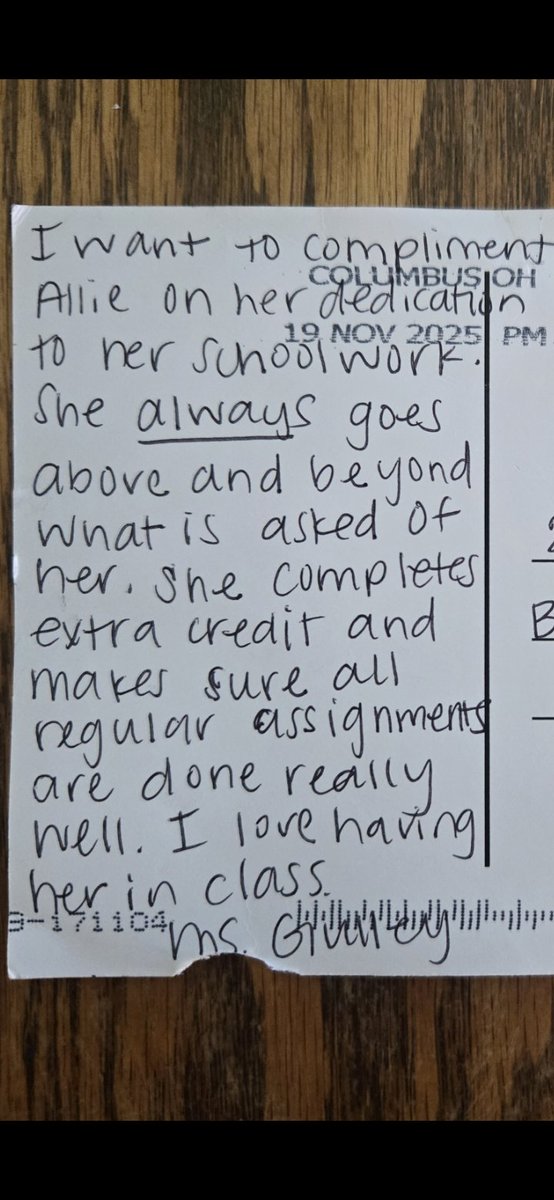 I want to compliment
COLUMBUS OH
Allie on her dedication
19 NOV 2025 PM
to her schoolwork.
She always goes
above and beyond
what is asked of
her. She completes
extra credit and
makes sure all
regular assignments
are done really
well. I love having
her in class.
Ms.